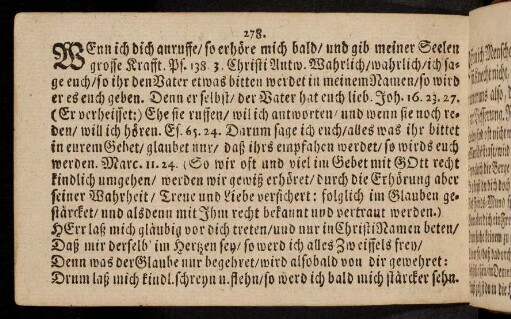 278.
WEnn ich dich anruffe/ so erhöre mich bald/ und gib meiner Seelen
grosse Krafft. Ps. 138. 3. Christi Antw. Wahrlich/ wahrlich/ ich sa-
ge euch/ so ihr den Vater etwas bitten werdet in meinem Namen/ so wird
er es euch geben. Denn er selbst/ der Vater hat euch lieb. Joh. 16. 23. 27.
(Er verheisset:) Ehe sie ruffen/ wil ich antworten/ und wenn sie noch re-
den/ wil ich hören. Es. 65. 24. Darum sage ich euch/ alles was ihr bittet
in eurem Gebet/ glaubet nur/ daß ihrs empfahen werdet/ so wirds euch
werden. Marc. 11. 24. (So wir oft und viel im Gebet mit GOtt recht
kindlich umgehen/ werden wir gewiß erhöret/ durch die Erhörung aber
seiner Wahrheit/ Treue und Liebe versichert: folglich im Glauben ge-
stärcket/ und alsdenn mit Ihm recht bekannt und vertraut werden.)
HErr laß mich gläubig vor dich treten/ und nur in Christi Namen beten/
Daß mir derselb' im Hertzen sey/ so werd ich alles Zweiffels frey/
Denn was der Glaube nur begehret/ wird alsobald von dir gewehret:
Drum laß mich kindl. schreyn u. flehn/ so werd ich bald mich stärcker sehn.